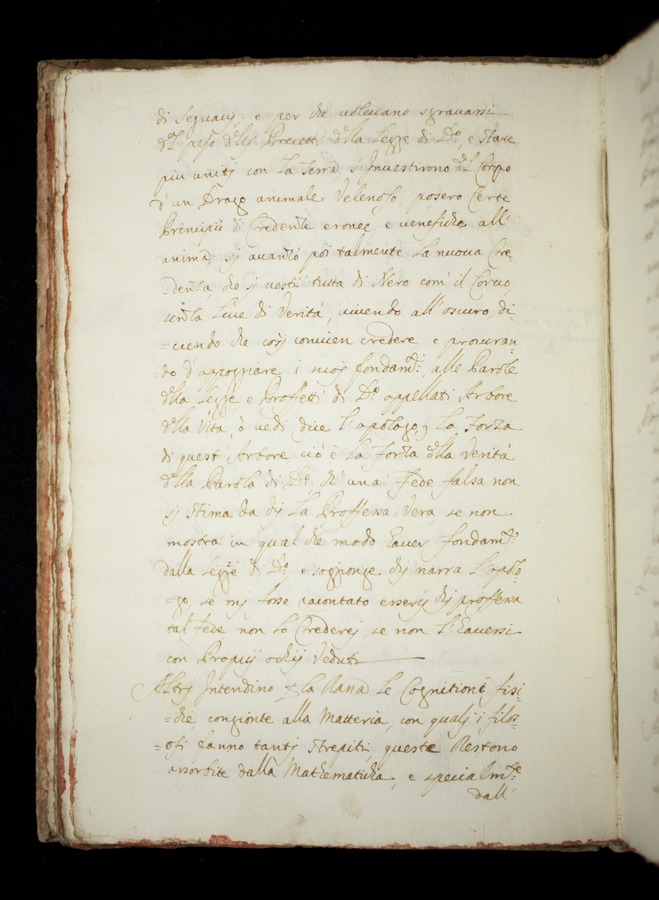 di Seguacij, e per che volevano sgravarsi
dal peso delli Precetti della Legge di D:º, e stare
più uniti con la Terra s'Investirono del Corpo
d'un Drago animale Velenoso, posero Certe
Principii di Credenza eronee e venefiche all'
anima, si avanzò poi talmente la nuova Cre=
=denza, che si vestì tutta di Nero com'il Corvo
senza Luce di Verità, vivendo all'oscuro, di=
=cendo che così convien credere, e procuran=
=do d'appoggiare i suoi fondam:ti alle Parole
della Legge e Proffetti di D:º appellati Arbore
della Vita, ò vedi dice l'apologo, la Forza
di quest'Arbore ciò è la forza della Verità
della Parola di D:º ch'una Fede falsa non
si stima da chi la Proffessa Vera se non
mostra in qual che modo haver fondam:to
dalla Legge di D:º, e sogionge chi narra l'apolo=
=go, se mi fosse racontato esserci chi proffessa
tal fede non lo Crederei, se non l'havessi
con Proprij ochij Veduti
Altri Intendino per la Rana le Cognitioni fisi=
=che, congionte alla Matteria, con quali i filos=
=ofi fanno tanti strepiti queste Restono
assorbite dalla Mathematicha, e specialm:te
dall'